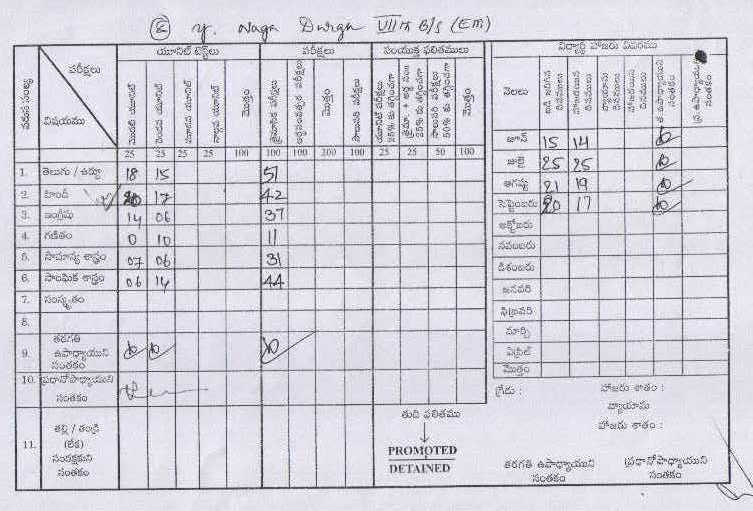 y. Naga Durga VIII B/s (EM)
యూనిట్ టెస్ట్‌లు పరీక్షలు సంయుక్త ఫలితములు విద్యార్థి హాజరు వివరము
వరుస సంఖ్య పరీక్షలు విషయము మొదటి యూనిట్ రెండవ యూనిట్ మూడవ యూనిట్ నాల్గవ యూనిట్ మొత్తం త్రైమాసిక పరీక్షలు అర్ధసంవత్సర పరీక్షలు మొత్తం సాలుసరి పరీక్షలు
నెలలు
25 25 25 25 100 100 100 200 100 25 25 50 100
1. తెలుగు / ఉర్దూ 18 15 51
2. హిందీ 20 17 42
3. ఇంగ్లీషు 14 06 37
4. గణితం 0 10 11
5. సామాన్య శాస్త్రం 07 06 31
6. సాంఘిక శాస్త్రం 06 14 44
7. సంస్కృతం
8.
9. తరగతి ఉపాధ్యాయుని సంతకం
10. ప్రధానోపాధ్యాయుని సంతకం
11. తల్లి / తండ్రి (లేక) సంరక్షకుని సంతకం
తుది ఫలితము
PROMOTED
DETAINED
జూన్ 15 14
జులై 25 25
ఆగష్టు 21 19
సెప్టెంబరు 20 17
అక్టోబరు
నవంబరు
డిశంబరు
జనవరి
ఫిబ్రవరి
మార్చి
ఏప్రిల్
మొత్తం
గ్రేడు : హాజరు శాతం :
వ్యాయామ
హాజరు శాతం :
తరగతి ఉపాధ్యాయుని సంతకం
ప్రధానోపాధ్యాయుని సంతకం